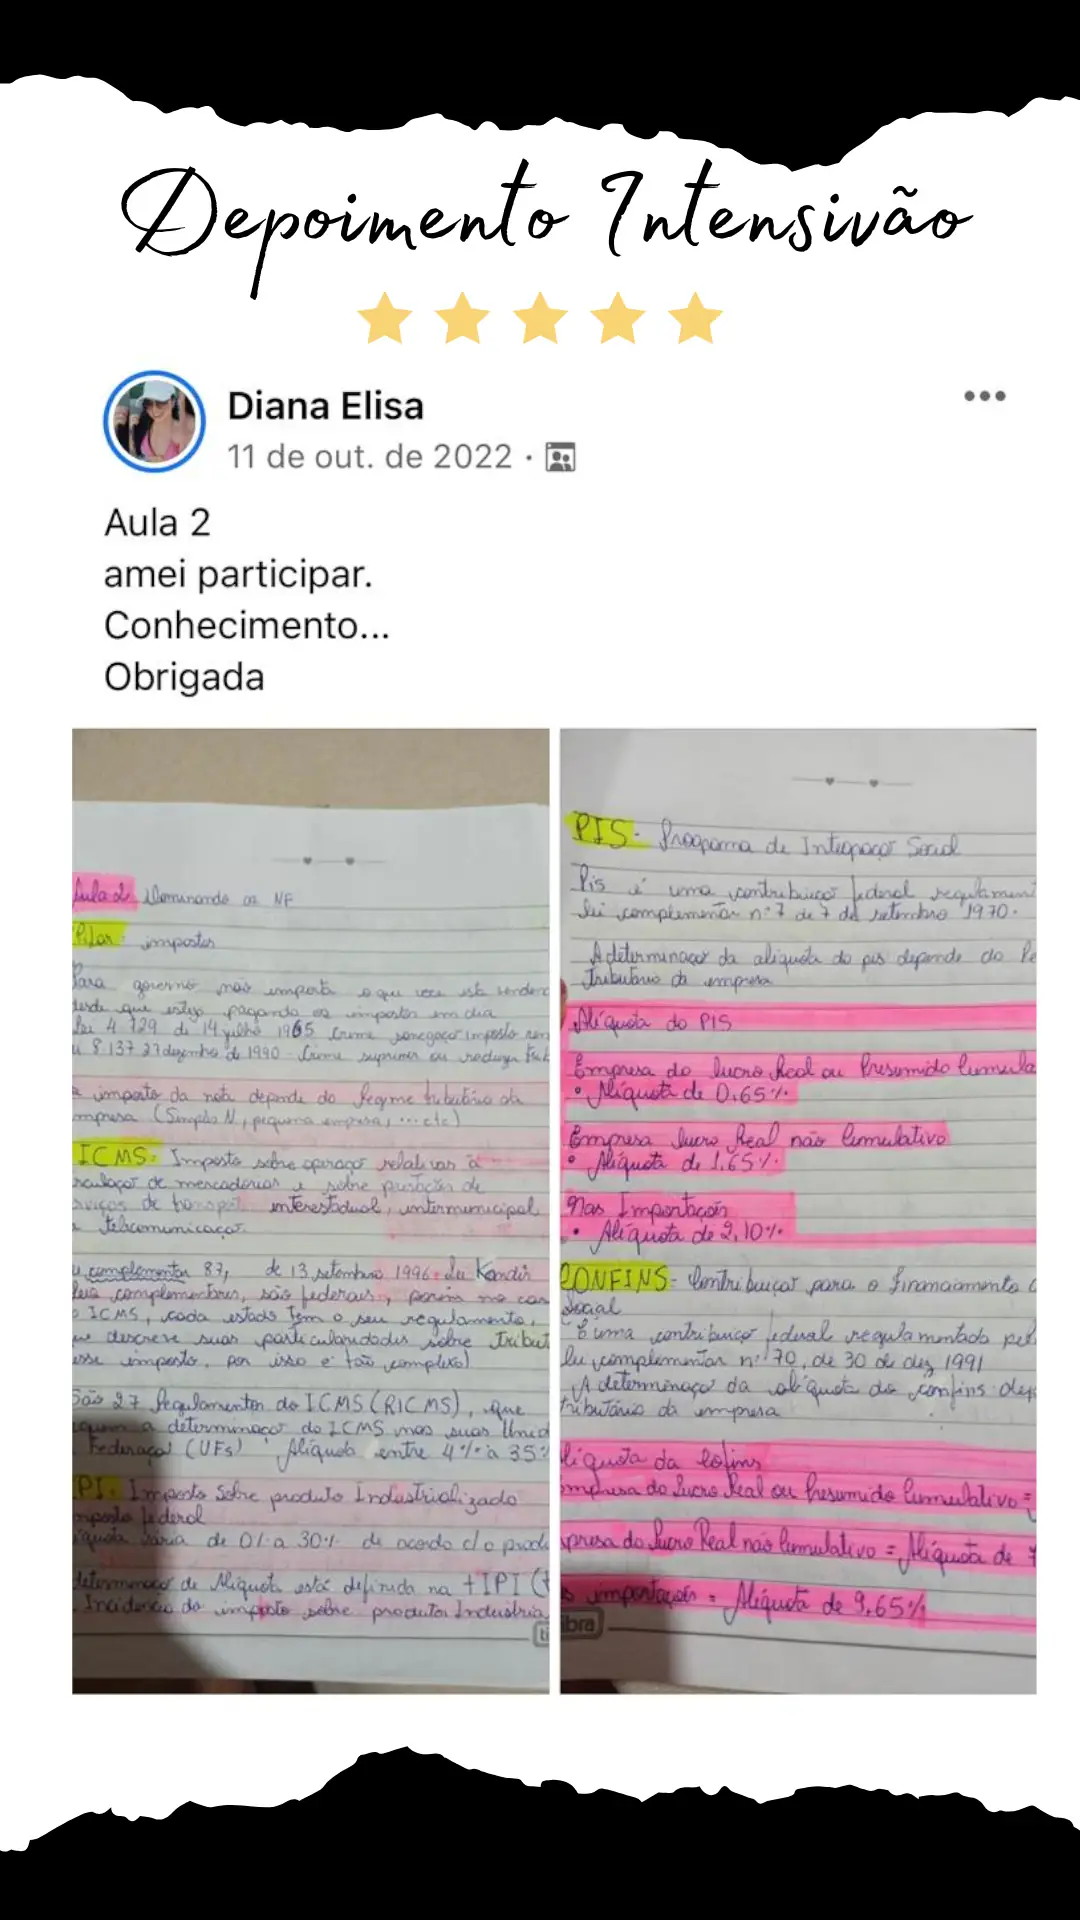 Depoimento Intensivão
Diana Elisa
11 de out. de 2022 ·
Aula 2
amei participar.
Conhecimento...
Obrigada
Aula 2 Dominando as NF
Pilar: impostos
Para governo não importa o que voce está vendend
desde que esteja pagando os impostos em dia
Lei 4.729 de 14 julho 1965 Crime sonegaçar imposto
8.137 27 dezembro de 1990 Crime suprimir ou reduzir
imposto da nota depende do Regime tributário da
mpresa (Simples N, pequena empresa, ... etc)
ICMS: Imposto sobre operaçor relativas à
rculaçor de mercadorias e sobre prestações de
rviços de transporte interestadual, intermunicipal
telecomunicaçor.
complementar 87, de 13 setembro 1996. Lei Kandir
leis complementares, são federais, porem no cas
ICMS, cada estado tem o seu regulamento,
descreve suas particularidades sobre tribut
esse imposto, por isso é tão complexo)
São 27 Regulamentos do ICMS (RICMS), que
a determinaçor do ICMS nas suas Unid
Federaçor (UFs) Aliquota entre 4% à 35%
IPI: Imposto Sobre produto Industrializado
mposto federal
iquota varia de 0% a 30% de acordo c/ o produ
determinaçor de Aliquota está definida na TIPI (t
Incidencia do imposto sobre produtos Industria
ti
PIS. Programa de Integraçor Social
Pis é uma contribuiçor federal regulament
lei complementar nº 7 de 7 de setembro 1970.
A determinaçor da aliquota do pis depende do Re
tributário da empresa
Alíquota do PIS
Empresa do lucro Real ou Presumido Cumula
• Alíquota de 0,65%.
Empresa lucro Real não Cumulativo
• Alíquota de 1,65%.
Nas Importaçoes
• Alíquota de 2,10%.
CONFINS = Contribuiçar para o Financiamento
Social
É uma contribuiçor federal regulamentada pel
lei complementar nº 70, de 30 de dez 1991
A determinaçor da aliquota do confins dep
tributário da empresa
liquota da Cofins
mpresa do Lucro Real ou Presumido Cumulativo =
presa do Lucro Real não Cumulativo = Alíquota de 7
s importações = Alíquota de 9,65%
ibra